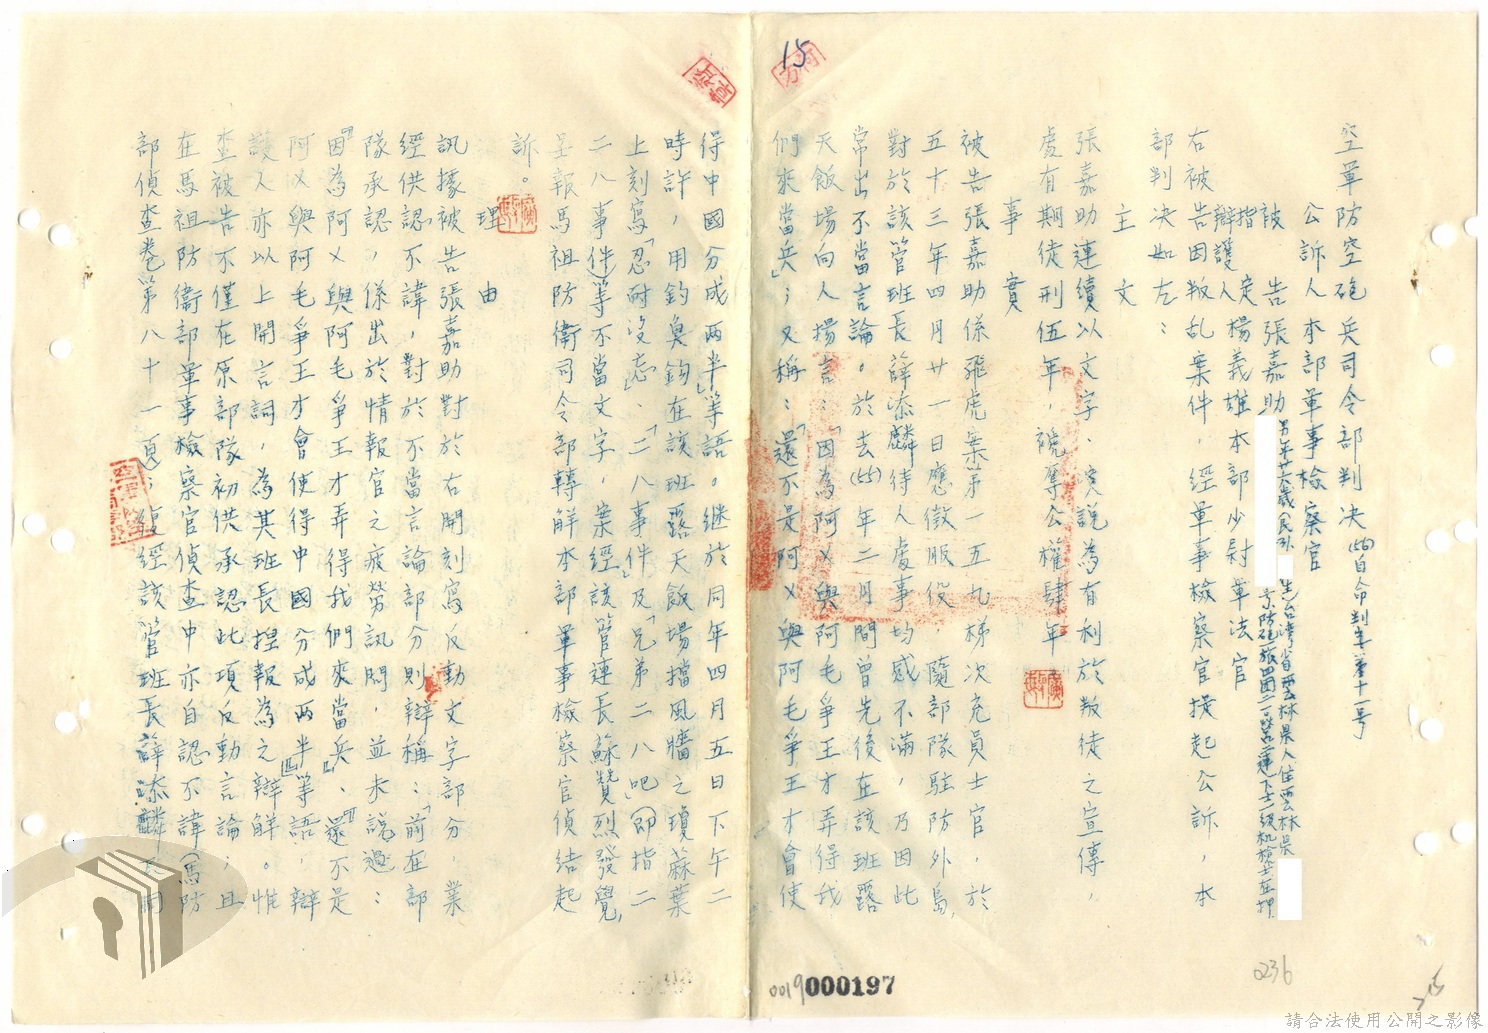 15
空軍防空砲兵司令部判决(56)自命判字第十一号
公訴人本部軍事檢察官
被告張嘉助
男年廿六歲民引
生台湾省雲林県人住雲林県
下士一級机槍士在押
指定辯護人楊義雄本部少尉軍法官
右被告因叛乱案件，經軍事檢察官提起公訴，本
部判决如左：
主文
張嘉助連續以文字、演說為有利於叛徒之宣傳，
處有期徒刑伍年，褫奪公權肆年
事實
被告張嘉助係飛虎案第一五九梯次充員士官，於
五十三年四月廿一日應徵服役，隨部隊駐防外島，
對於該管班長薛添麟待人處事均感不滿，乃因此
常出不當言論。於去(55)年二月間曾先後在該班露
天飯場向人揚言：「因為阿乂與阿毛爭王才弄得我
們來當兵」；又稱：「還不是阿乂與阿毛爭王才會使
得中國分成兩半」等語。继於同年四月五日下午二
時許，用釣魚鈎在該班露天飯場擋風牆之瓊蔴葉
上刻寫「忍耐沒忘」、「二八事件」及「兄弟二八吧」(即指二
二八事件)等不當文字，案經該管連長蘇贊烈發覺，
呈報馬祖防衛司令部轉解本部軍事檢察官偵結起
訴。
理由
訊據被告張嘉助對於右開刻寫反動文字部分，業
經供認不諱，對於不當言論部分則辯稱：「前在部
隊承認，係出於情報官之疲勞訊問，並未說過：
『因為阿乂與阿毛爭王才弄得我們來當兵』、『還不是
阿乂與阿毛爭王才會使得中國分成兩半』」等語，辯
護人亦以上開言詞，為其班長捏報為之辯解。惟
查被告不僅在原部隊初供承認此項反動言論；且
在馬祖防衛部軍事檢察官偵查中亦自認不諱(馬防
部偵查卷第八十一頁)；復經該管班長薛添麟
0019000197
0236
請合法使用公開之影像